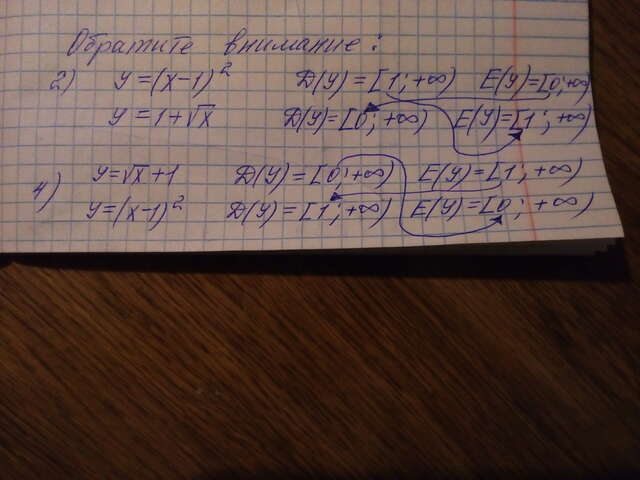 Обратите внимание:
2) y=(x-1)² D(y)=[1;+∞) E(y)=[0;+∞)
y=1+√x D(y)=[0;+∞) E(y)=[1;+∞)
4) y=√x+1 D(y)=[0;+∞) E(y)=[1;+∞)
y=(x-1)² D(y)=[1;+∞) E(y)=[0;+∞)